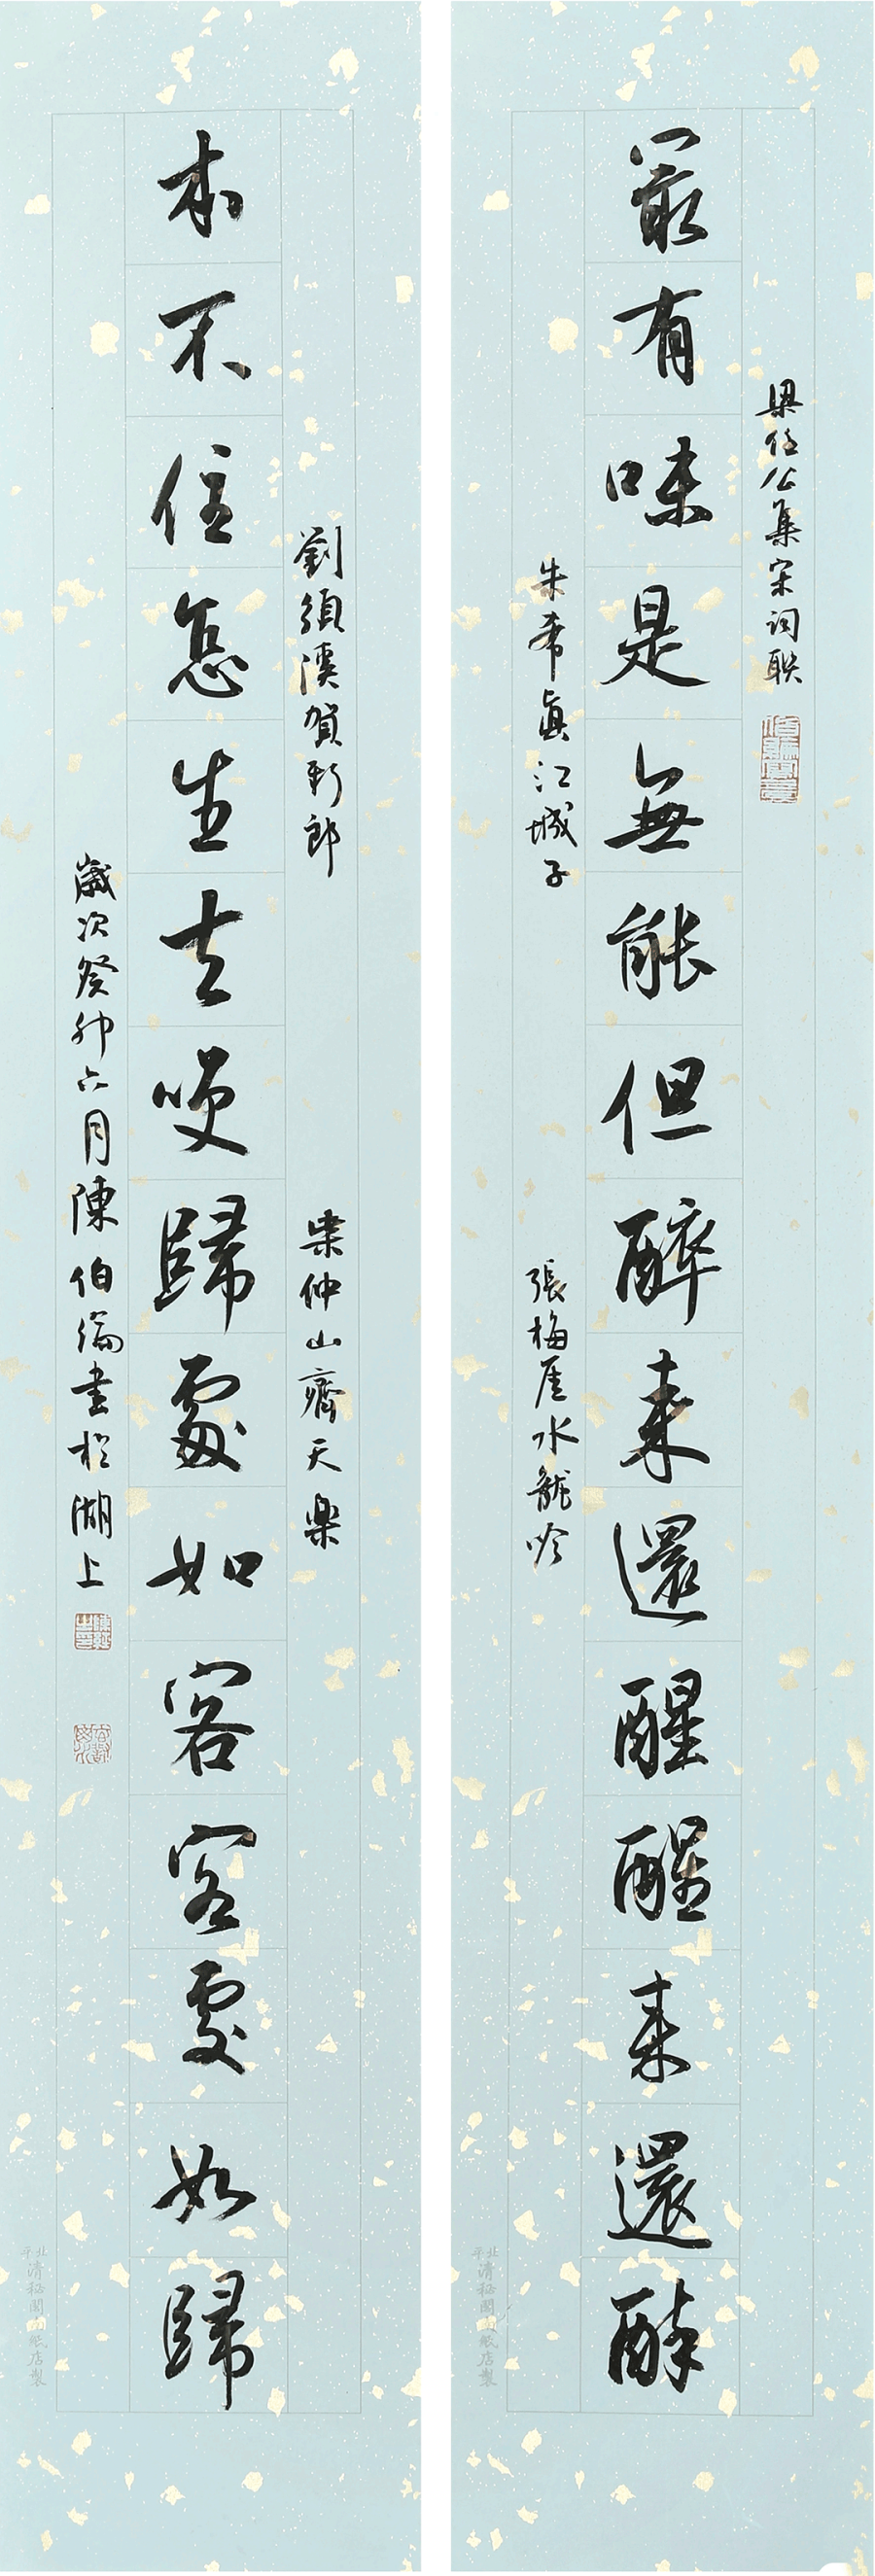 梁任公集宋词联
最有味是無能但醉来還醒醒来還醉
朱希真江城子
張梅厓水龍吟
北平
清秘閣南紙店製
劉須溪賀新郎
柴仲山齊天樂
本不住怎生去笑歸處如客客處如歸
歲次癸卯六月陳伯綸書於湖上
北平
清秘閣南紙店製